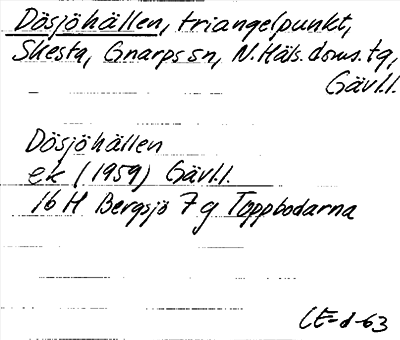 Dösjöhällen, triangelpunkt,
Skesta, Gnarps sn, N. Häls. doms. tg,
Gävl.l.
Dösjöhällen
ek (1959) Gävl.l.
16 H Bergsjö 7 g Toppbodarna
CE-d-63